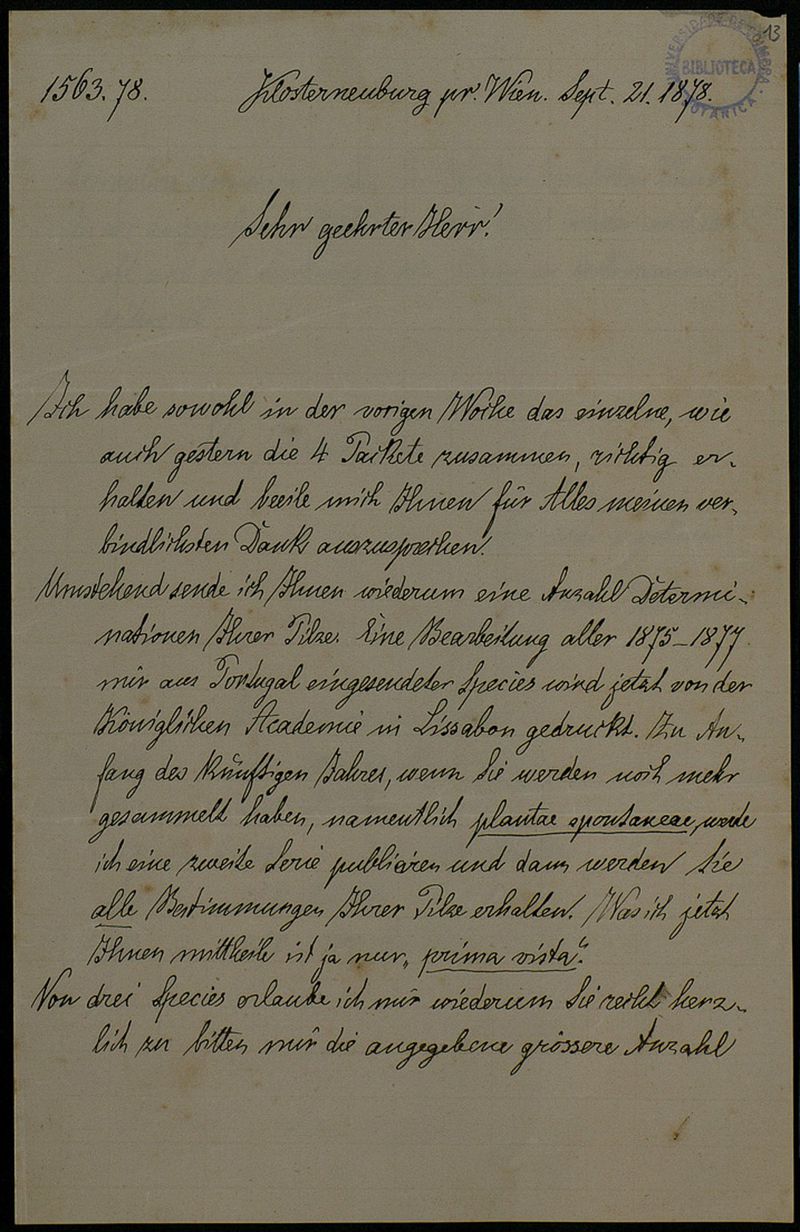 13
UNIVERSIDADE DE COIMBRA
BIBLIOTECA
BOTANICA
1563.78. Klosterneuburg pr. Wien. Sept. 21. 1878.
Sehr geehrter Herr!
Ich habe sowohl in der vorigen Woche das einzelne, wie
auch gestern die 4 Packete zusammen, richtig er-
halten und beeile mich Ihnen für Alles meinen ver-
bindlichsten Dank auszusprechen.
Umstehend sende ich Ihnen wiederum eine Anzahl Determi-
nationen Ihrer Pilze. Eine Bearbeitung aller 1875–1877
mir aus Portugal eingesendeter Species wird jetzt von der
Königlichen Academie in Lissabon gedruckt. Zu An-
fang des künftigen Jahres, wenn Sie werden noch mehr
gesammelt haben, namentlich plantae spontaneae, werde
ich eine zweite Serie publiciren und dann werden Sie
alle Bestimmungen Ihrer Pilze erhalten. Was ich jetzt
Ihnen mittheile ist ja nur „prima vista“.
Von drei Species erlaube ich mir wiederum Sie recht herz-
lich zu bitten mir die angegebene grössere Anzahl